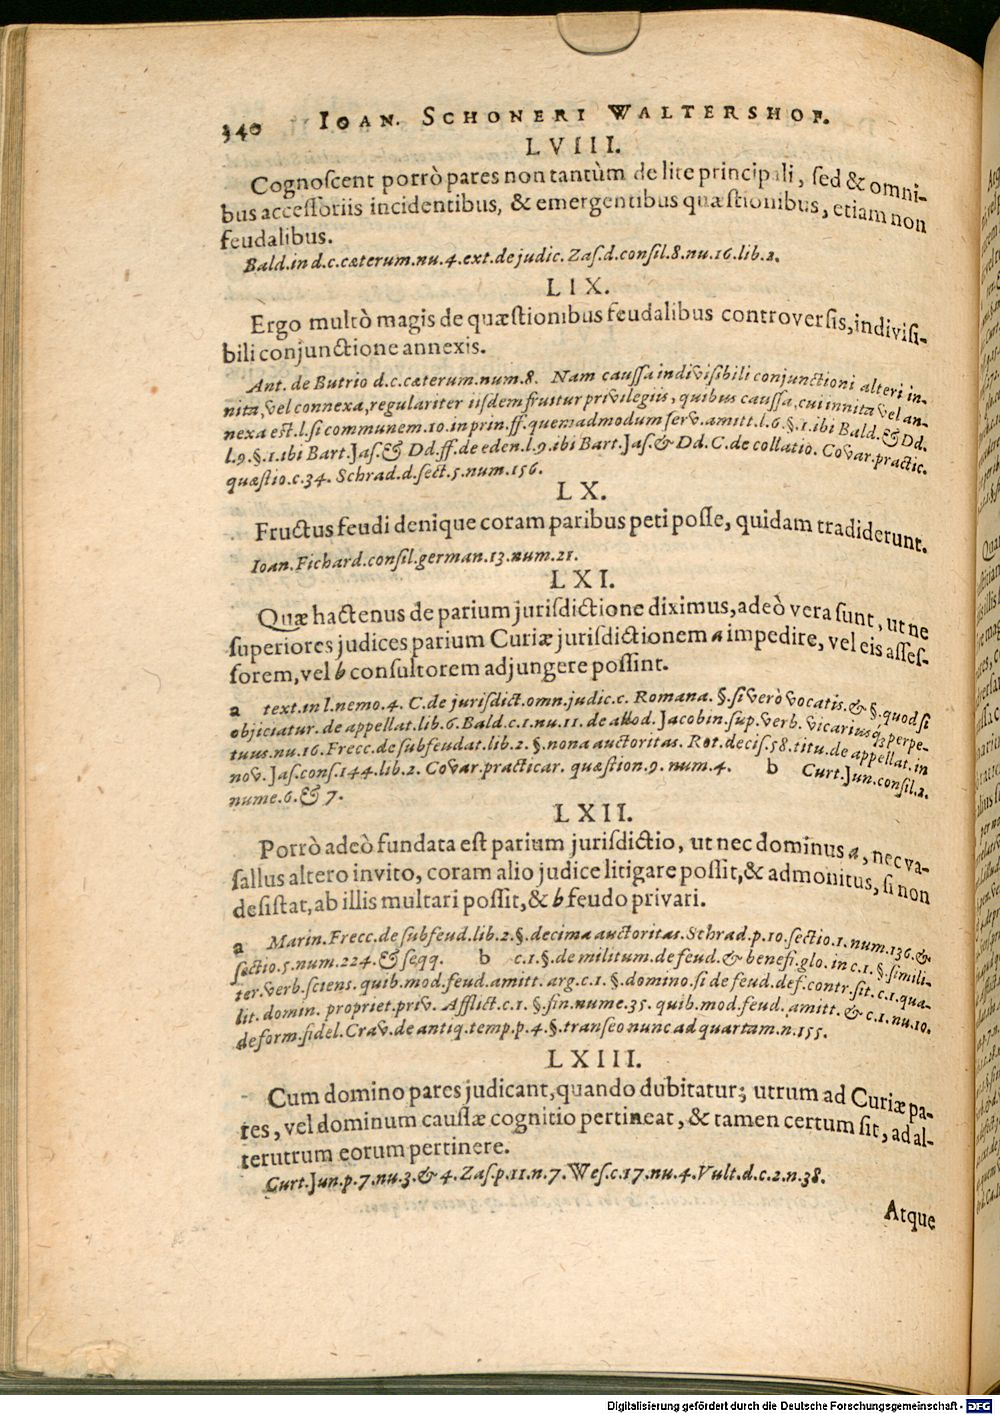 340 IOAN. SCHONERI WALTERSHOF.
LVIII.
Cognoscent porrò pares non tantùm de lite principali, sed & omni-
bus accessoriis incidentibus, & emergentibus quæstionibus, etiam non
feudalibus.
Bald. in d. c. cæterum. nu. 4. ext. de judic. Zas. d. consil. 8. nu. 16. lib. 2.
LIX.
Ergo multò magis de quæstionibus feudalibus controversis, indivisi-
bili conjunctione annexis.
Ant. de Butrio d. c. cæterum. num. 8. Nam caussa indivisibili conjunctioni alteri in-
nita, vel connexa, regulariter iisdem fruitur privilegiis, quibus caussa, cui innita vel an-
nexa est. l. si communem. 10. in prin. ff. quemadmodum serv. amitt. l. 6. §. 1. ibi Bald. & Dd.
l. 9. §. 1. ibi Bart. Jas. & Dd. ff. de eden. l. 9. ibi Bart. Jas. & Dd. C. de collatio. Covar. practic.
quæstio. c. 34. Schrad. d. sect. 5. num. 156.
LX.
Fructus feudi denique coram paribus peti posse, quidam tradiderunt.
Ioan. Fichard. consil. german. 13. num. 21.
LXI.
Quæ hactenus de parium jurisdictione diximus, adeò vera sunt, ut ne
superiores judices parium Curiæ jurisdictionem a impedire, vel eis asses-
sorem, vel b consultorem adjungere possint.
a text. in l. nemo. 4. C. de jurisdict. omn. judic. c. Romana. §. si verò vocatis. & §. quod si
objiciatur. de appellat. lib. 6. Bald. c. 1. nu. 11. de allod. Jacobin. sup. verb. vicariusq́; perpe-
tuus. nu. 16. Frecc. de subfeudat. lib. 2. §. nona auctoritas. Rot. decis. 58. titu. de appellat. in
nov. Jas. cons. 144. lib. 2. Covar. practicar. quæstion. 9. num. 4. b Curt. Jun. consil. 2.
nume. 6. & 7.
LXII.
Porrò adeò fundata est parium jurisdictio, ut nec dominus a, nec va-
sallus altero invito, coram alio judice litigare possit, & admonitus, si non
desistat, ab illis multari possit, & b feudo privari.
a Marin. Frecc. de subfeud. lib. 2. §. decima auctoritas. Schrad. p. 10. sectio. 1. num. 136. &
sectio. 5. num. 224. & seqq. b c. 1. §. de militum. de feud. & benefi. glo. in c. 1. §. simili-
ter. verb. sciens. quib. mod. feud. amitt. arg. c. 1. §. domino. si de feud. def. contr. sit. c. 1. qua-
lit. domin. propriet. priv. Afflict. c. 1. §. fin. nume. 35. quib. mod. feud. amitt. & c. 1. nu. 10.
de form. fidel. Crav. de antiq. temp. p. 4. §. transeo nunc ad quartam. n. 155.
LXIII.
Cum domino pares judicant, quando dubitatur; utrum ad Curiæ pa-
res, vel dominum caussæ cognitio pertineat, & tamen certum sit, ad al-
terutrum eorum pertinere.
Curt. Jun. p. 7. nu. 3. & 4. Zas. p. 11. n. 7. Wes. c. 17. nu. 4. Vult. d. c. 2. n. 38.
Atque
Digitalisierung gefördert durch die Deutsche Forschungsgemeinschaft - DFG